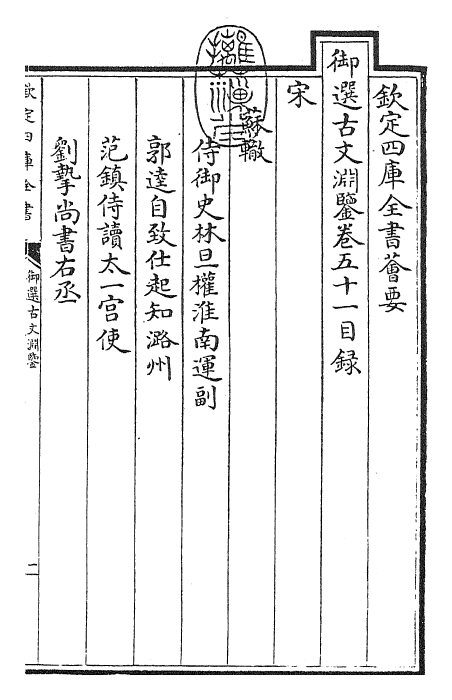 欽定四庫全書薈要
御選古文淵鑒卷五十一目録
宋
蘇轍
侍御史林旦權淮南運副
郭逵自致仕起知潞州
范鎮侍讀太一宫使
劉摯尚書右丞
欽定四庫全書
御選古文淵鑒